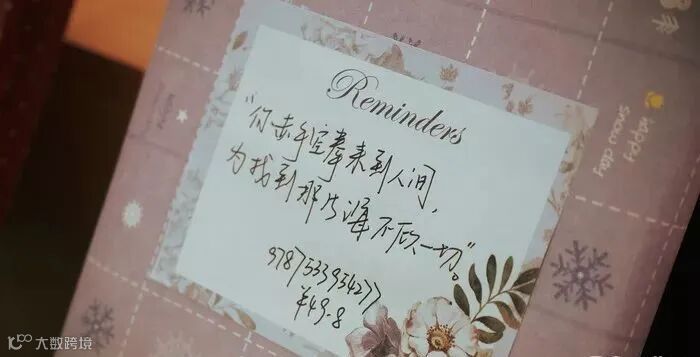 Reminders
"你赤手空拳来到人间,
为找到那片海不顾一切"。
9787533954277
¥49.8
happy
snow day
大数跨境